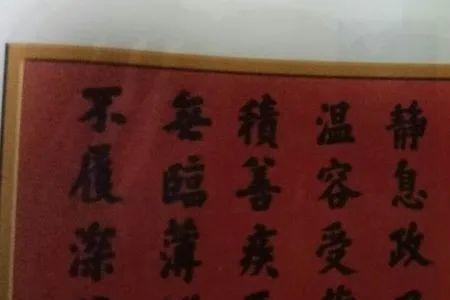 静息政
温容受
積善疾
毎臨薄
不履深